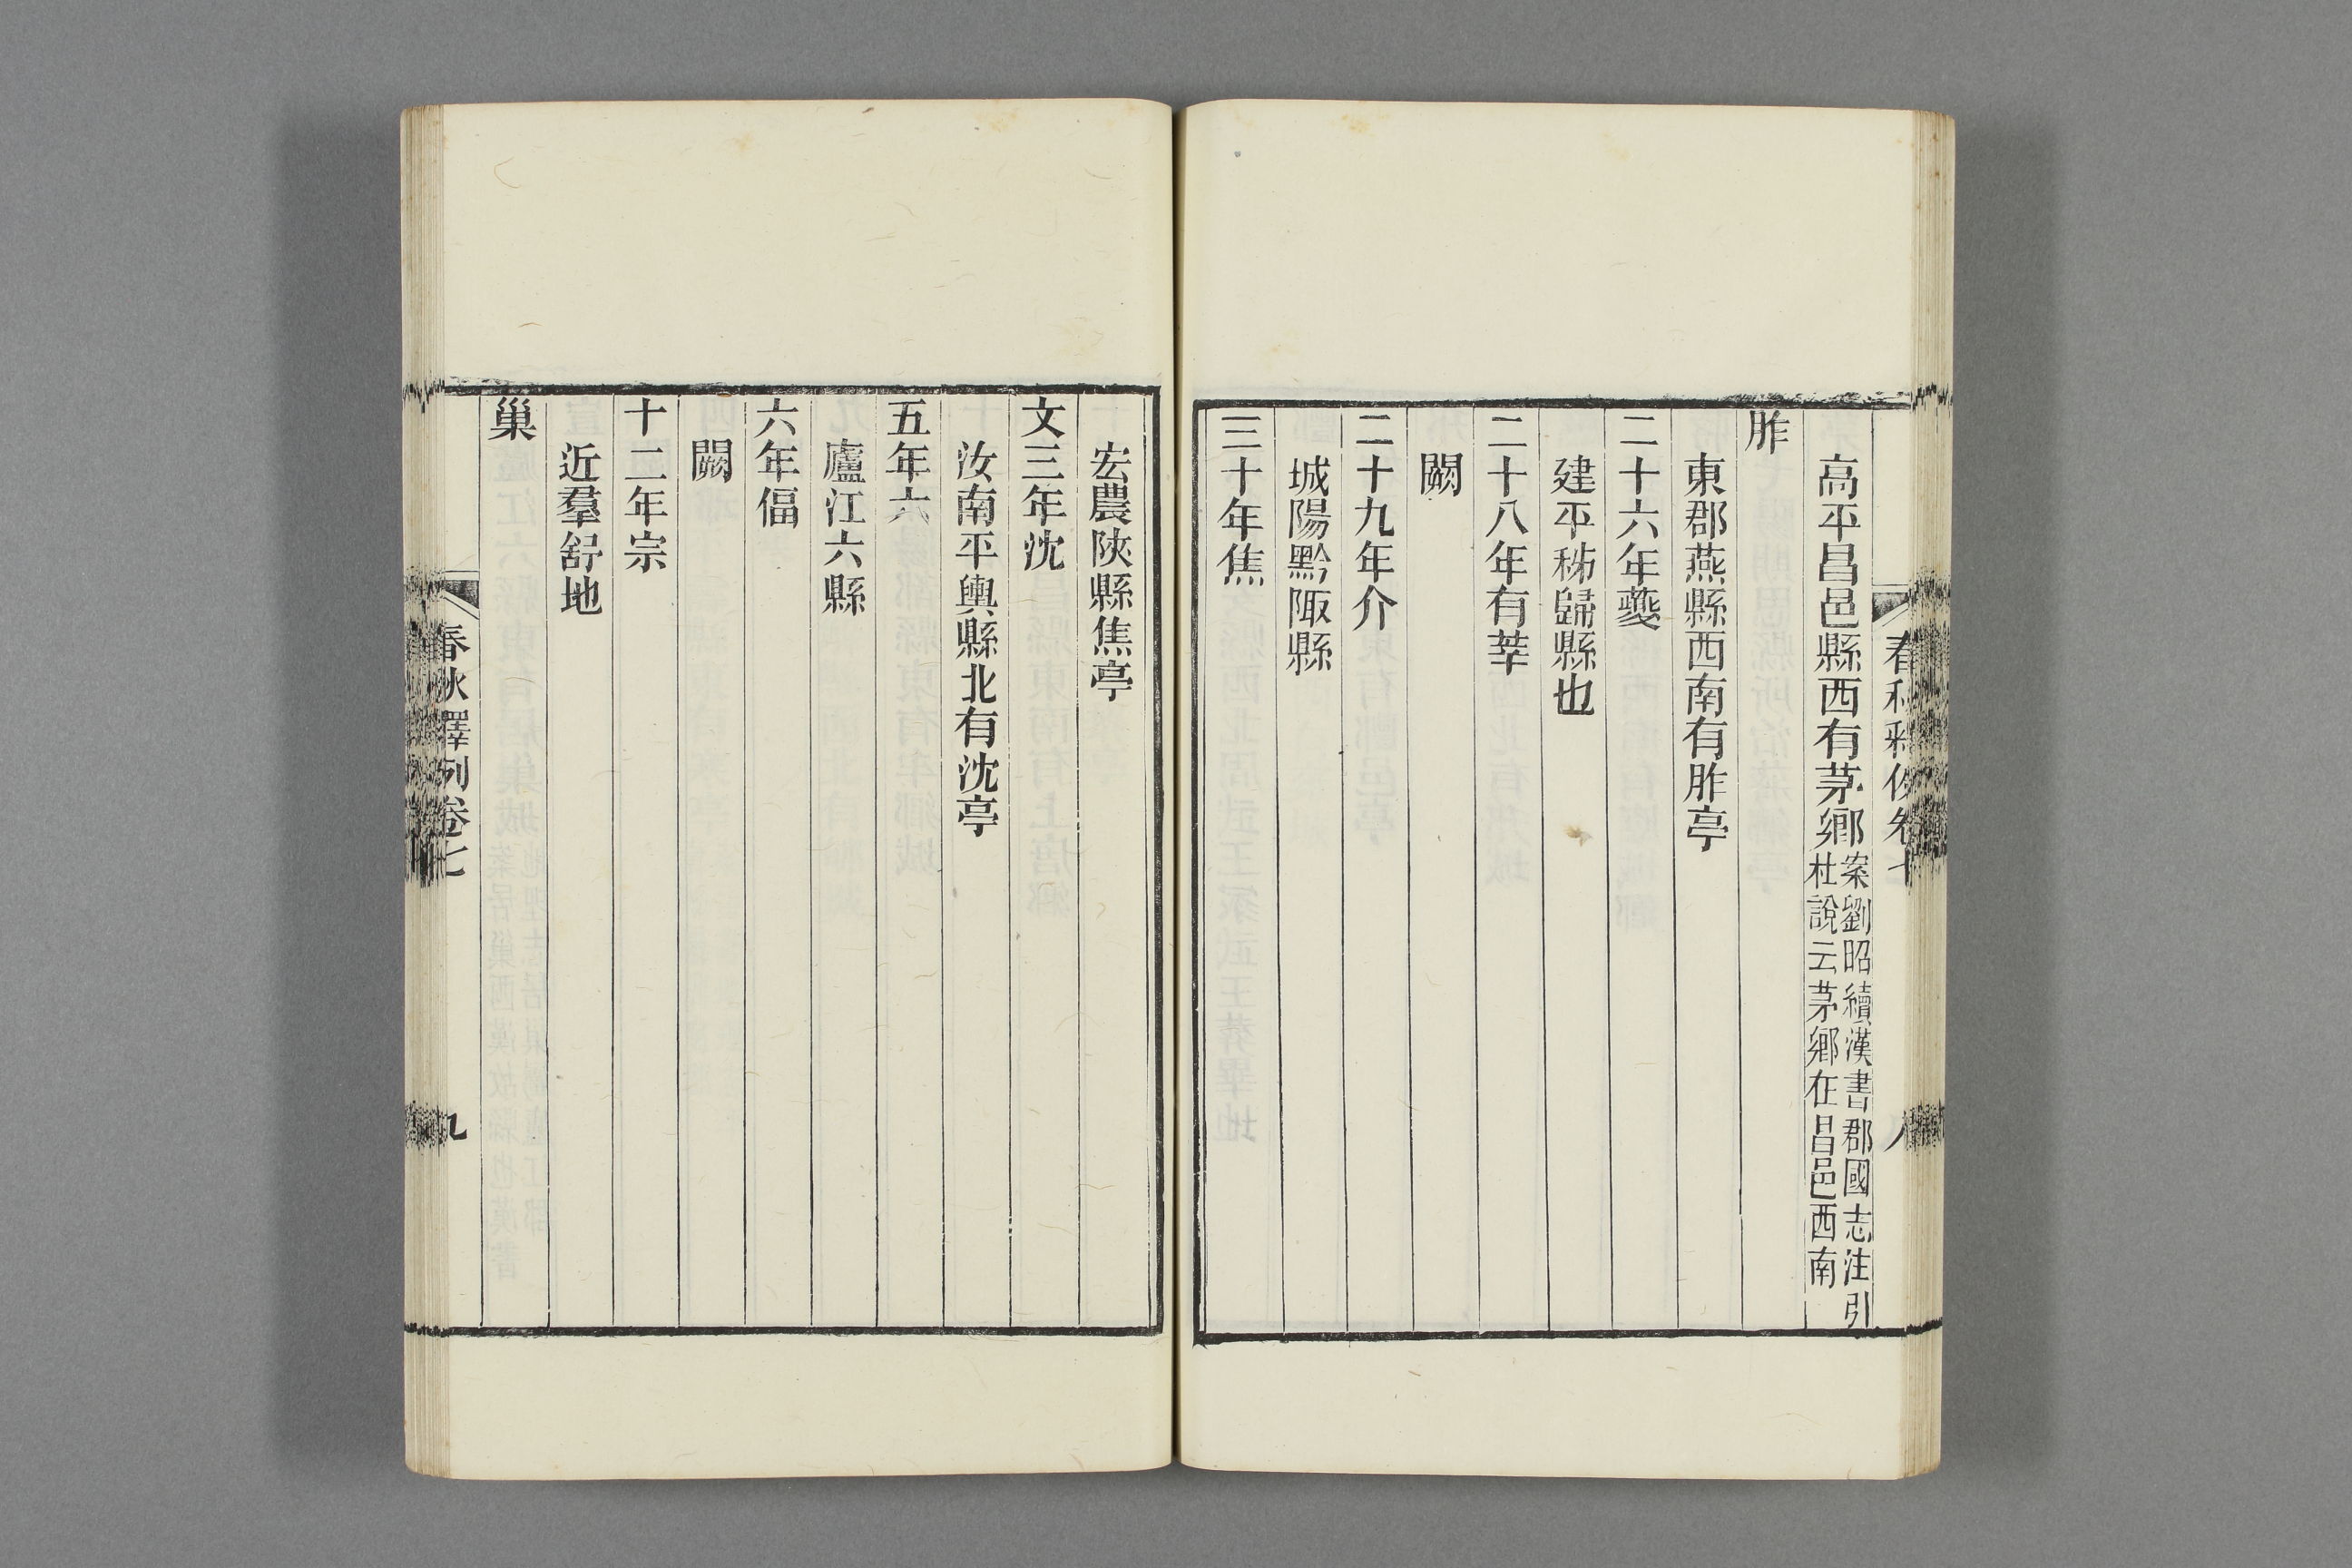 春秋釋例卷七
八
高平昌邑縣西有茅鄉案劉昭續漢書郡國志注引
杜說云茅鄉在昌邑西南
胙
東郡燕縣西南有胙亭
二十六年夔
建平秭歸縣也
二十八年有莘
闕
二十九年介
城陽黔陬縣
三十年焦
宏農陜縣焦亭
文三年沈
汝南平輿縣北有沈亭
五年六
廬江六縣
六年偪
闕
十二年宗
近羣舒地
巢
春秋釋例卷七
九